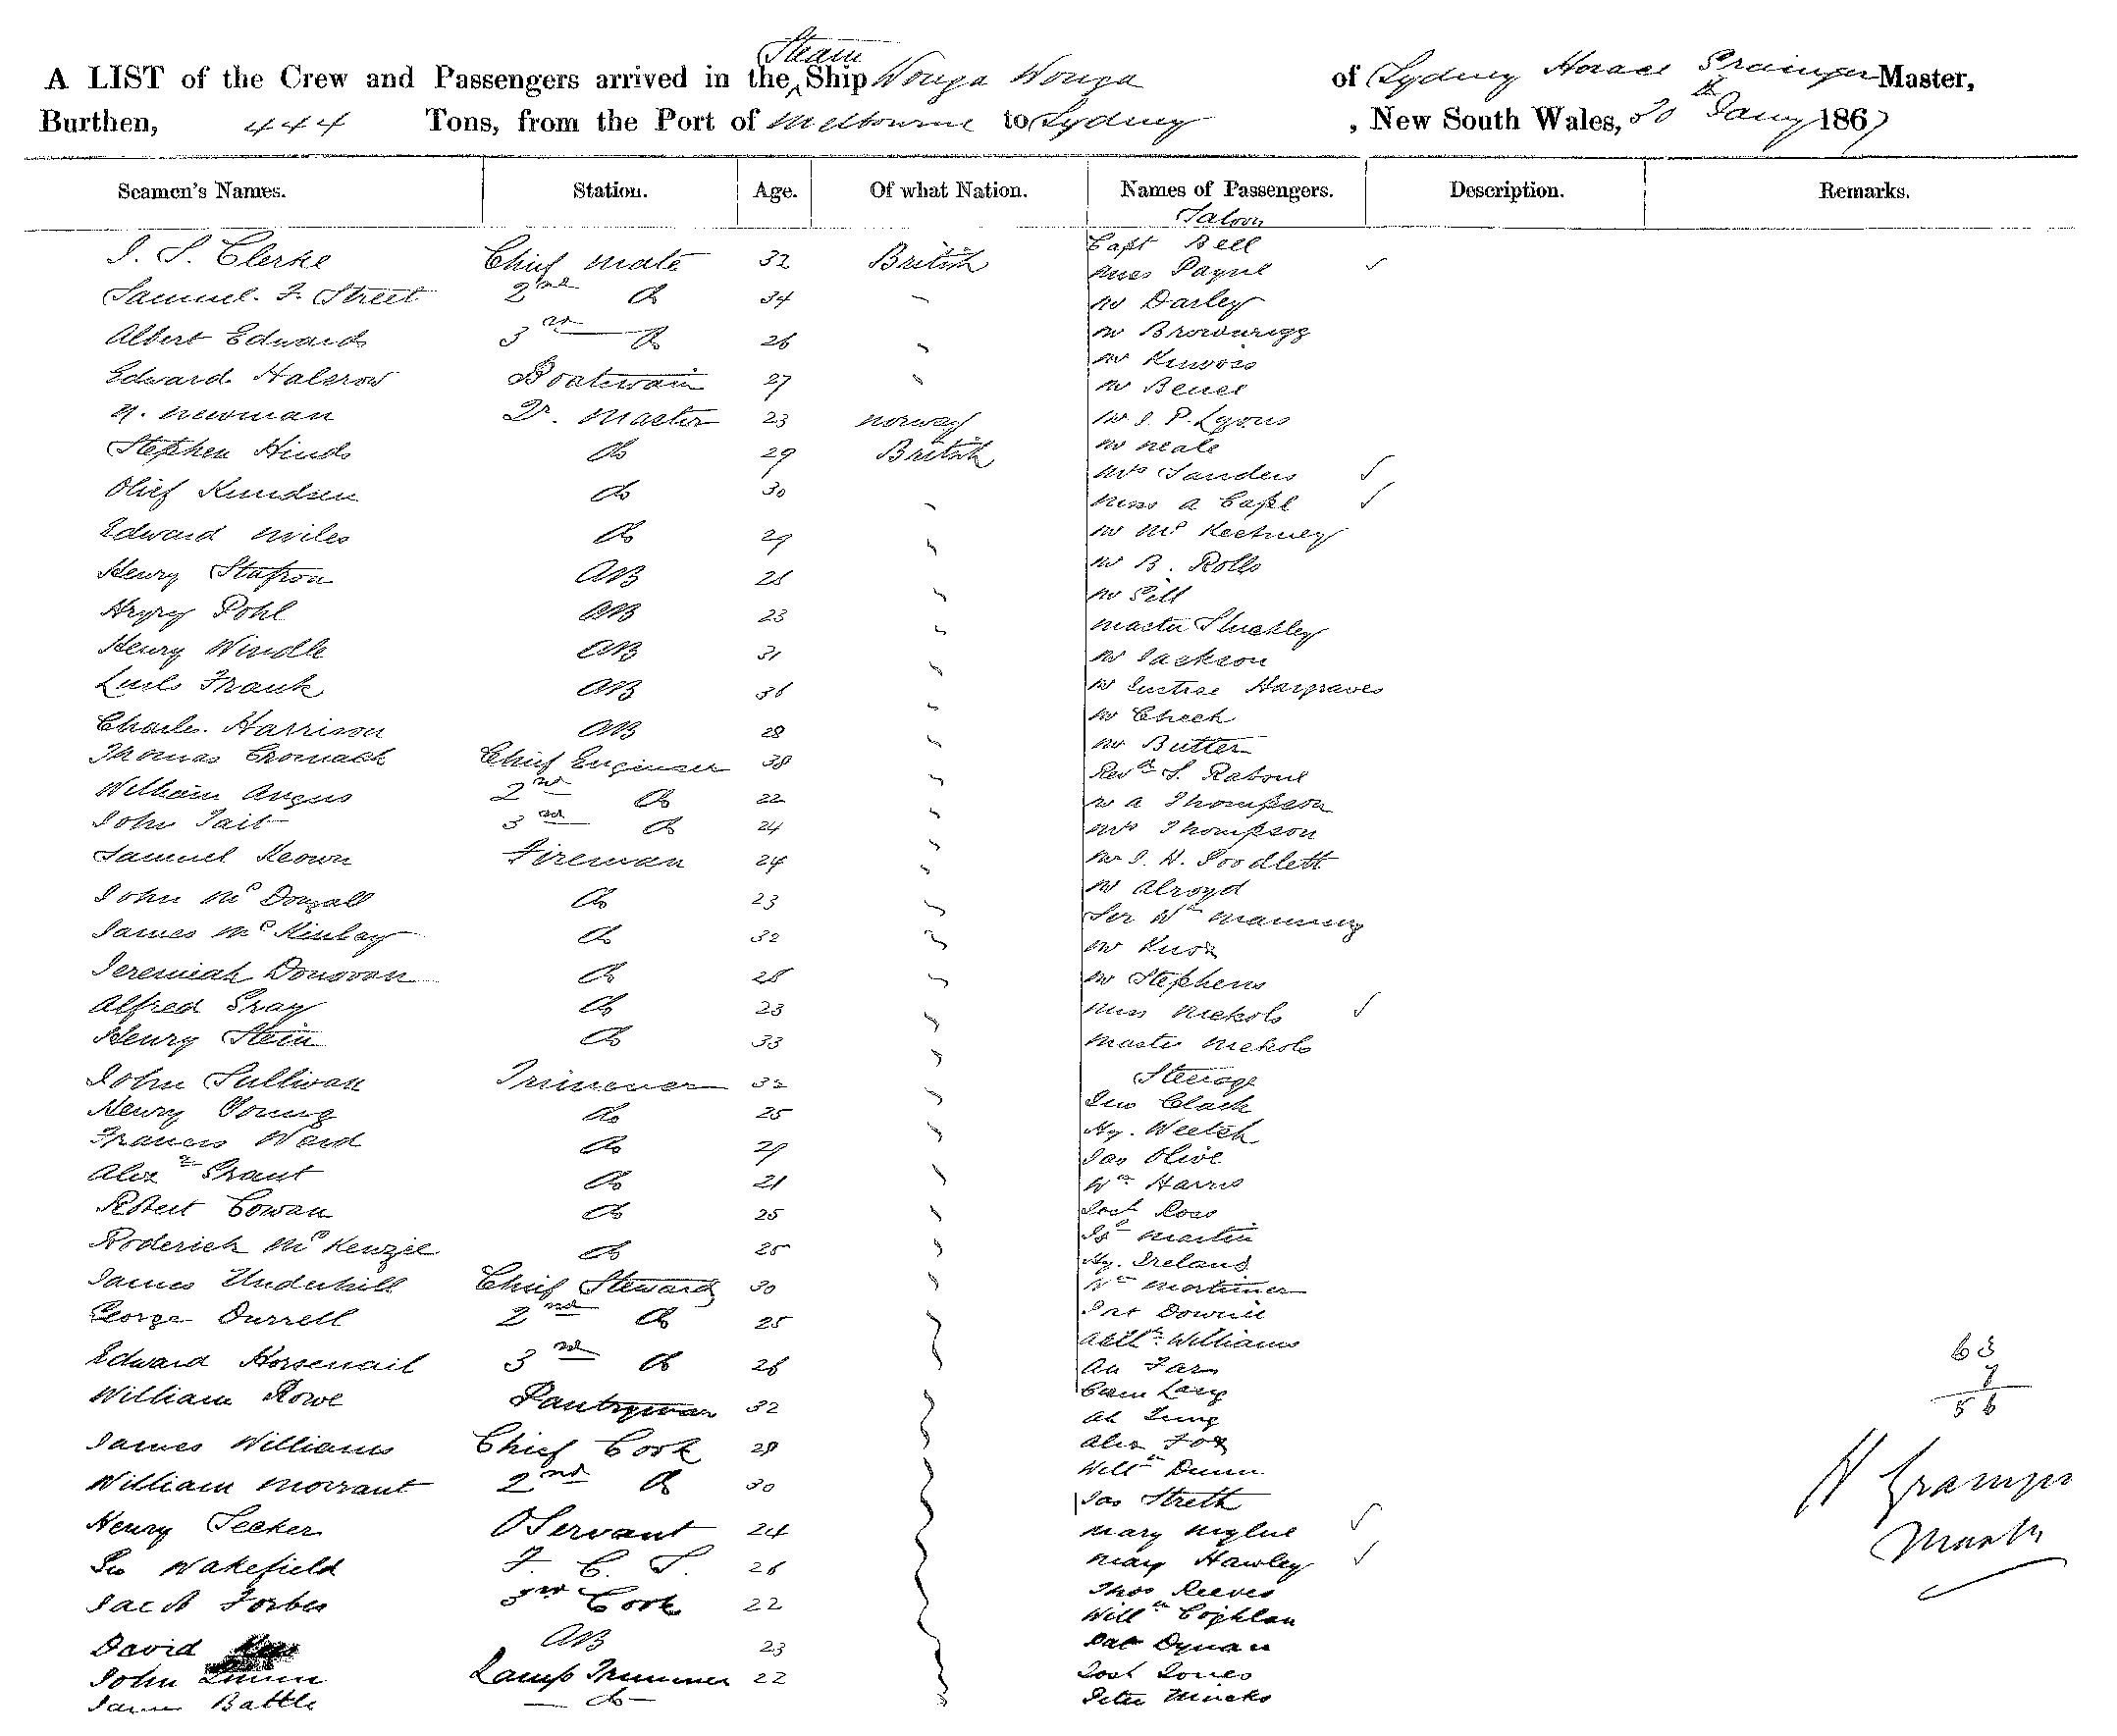 A LIST of the Crew and Passengers arrived in the Steam Ship Wonga Wonga of Sydney Horace Grainger Master,
Burthen, 444 Tons, from the Port of Melbourne to Sydney, New South Wales, 30th Jany 1867
Seamen's Names. Station. Age. Of what Nation. Names of Passengers. Description. Remarks.
Saloon
J. S. Clerke Chief Mate 32 British Capt Bell
Payne ✓
Samuel. F. Street 2nd Do 34 " Mr Darley
Albert Edwards 3rd Do 26 " Mr Brownrigg
Mr
Edward Halcrow Boatswain 27 " Mr
N. Newman Qr. Master 23 Norway Mr J. P. Lyons
Stephen Hinds Do 29 British Mr Neale
Mrs Sanders ✓
Olief Knudsen Do 30 " Miss A Cape ✓
Edward Miles Do 29 " Mr Mc
Henry AB 28 " Mr B. Rolls
Mr
Pohl AB 23 " Master Stuckley
Henry Windle AB 31 " Mr Jackson
Frank AB 36 " Mr Hargraves
Charles. Harrison AB 28 " Mr Cheek
Thomas Cromack Chief Engineer 38 " Mr Butter
William Angus 2nd Do 22 " Revd S. Rabone
Mr A Thompson
John Tait 3rd Do 24 " Mrs Thompson
Samuel Keown Fireman 24 " Mr J. H. Goodlett
John McDougall Do 23 " Mr Alroyd
James McKinlay Do 32 " Sir Wm Manning
Mr
Jeremiah Donovan Do 28 " Mr Stephens
Alfred Gray Do 23 " Miss Nichols ✓
Henry Stein Do 33 " Master Nichols
John Sullivan Trimmer 32 " Steerage
Henry Young Do 25 " Geo Clack
Francis Ward Do 29 " Hy. Weetch
Jas Olive
Alexr Grant Do 21 " Wm Harris
Robert Cowan Do 25 " Josh Ross
Martin
Roderick McKenzie Do 25 " Hy. Ireland
James Underhill Chief Steward 30 " Wm Mortimer
George Durrell 2nd Do 25 Pat Downie
Williams
Edward Horsenail 3rd Do 26 Ah Far
63
7
56
William Rowe Pantryman 32 Lang
Ah
James Williams Chief Cook 28 Alex Fox
William Morrant 2nd Do 30 Willm Dunn
Jas Streth
Henry Seeker O Servant 24 Mary ✓
H Grainger
Master
Geo Wakefield F. C. S. 26 Mary Hawley ✓
Thos Reeves
Jacob Forbes 3rd Cook 22 Willm Coghlan
David AB 23 Pat Dynan
John Lamp Trimmer 22 Josh Jones
Battle Do Peter